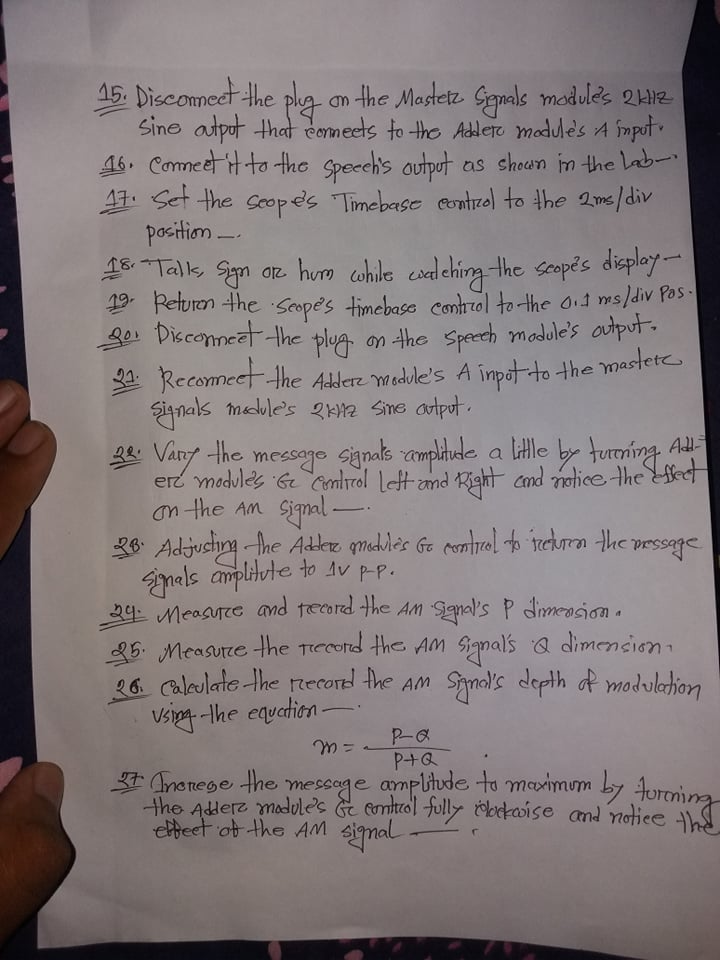 15. Disconnect the plug on the Master Signals module's 2kHz
sine output that connects to the Adder module's A input.
16. Connect it to the speech's output as shown in the lab—
17. Set the scope's Timebase control to the 2ms/div
position —.
18. Talk, Sign or hum while watching the scope's display—
19. Return the scope's timebase control to the 0.1 ms/div Pos.
20. Disconnect the plug on the speech module's output.
21. Reconnect the Adder module's A input to the master
signals module's 2kHz sine output.
22. Vary the message signals amplitude a little by turning Add-
er module's G control left and Right and notice the effect
on the AM signal —.
23. Adjusting the Adder module's G control to return the message
signals amplitute to 1v p-p.
24. Measure and record the AM signal's P dimension.
25. Measure the record the AM signal's Q dimension.
26. Calculate the record the AM signal's depth of modulation
using the equation —.
m = P-Q
P+Q .
27 Increse the message amplitude to maximum by turning
the Adder module's G control fully clockwise and notice the
effect of the AM signal — .